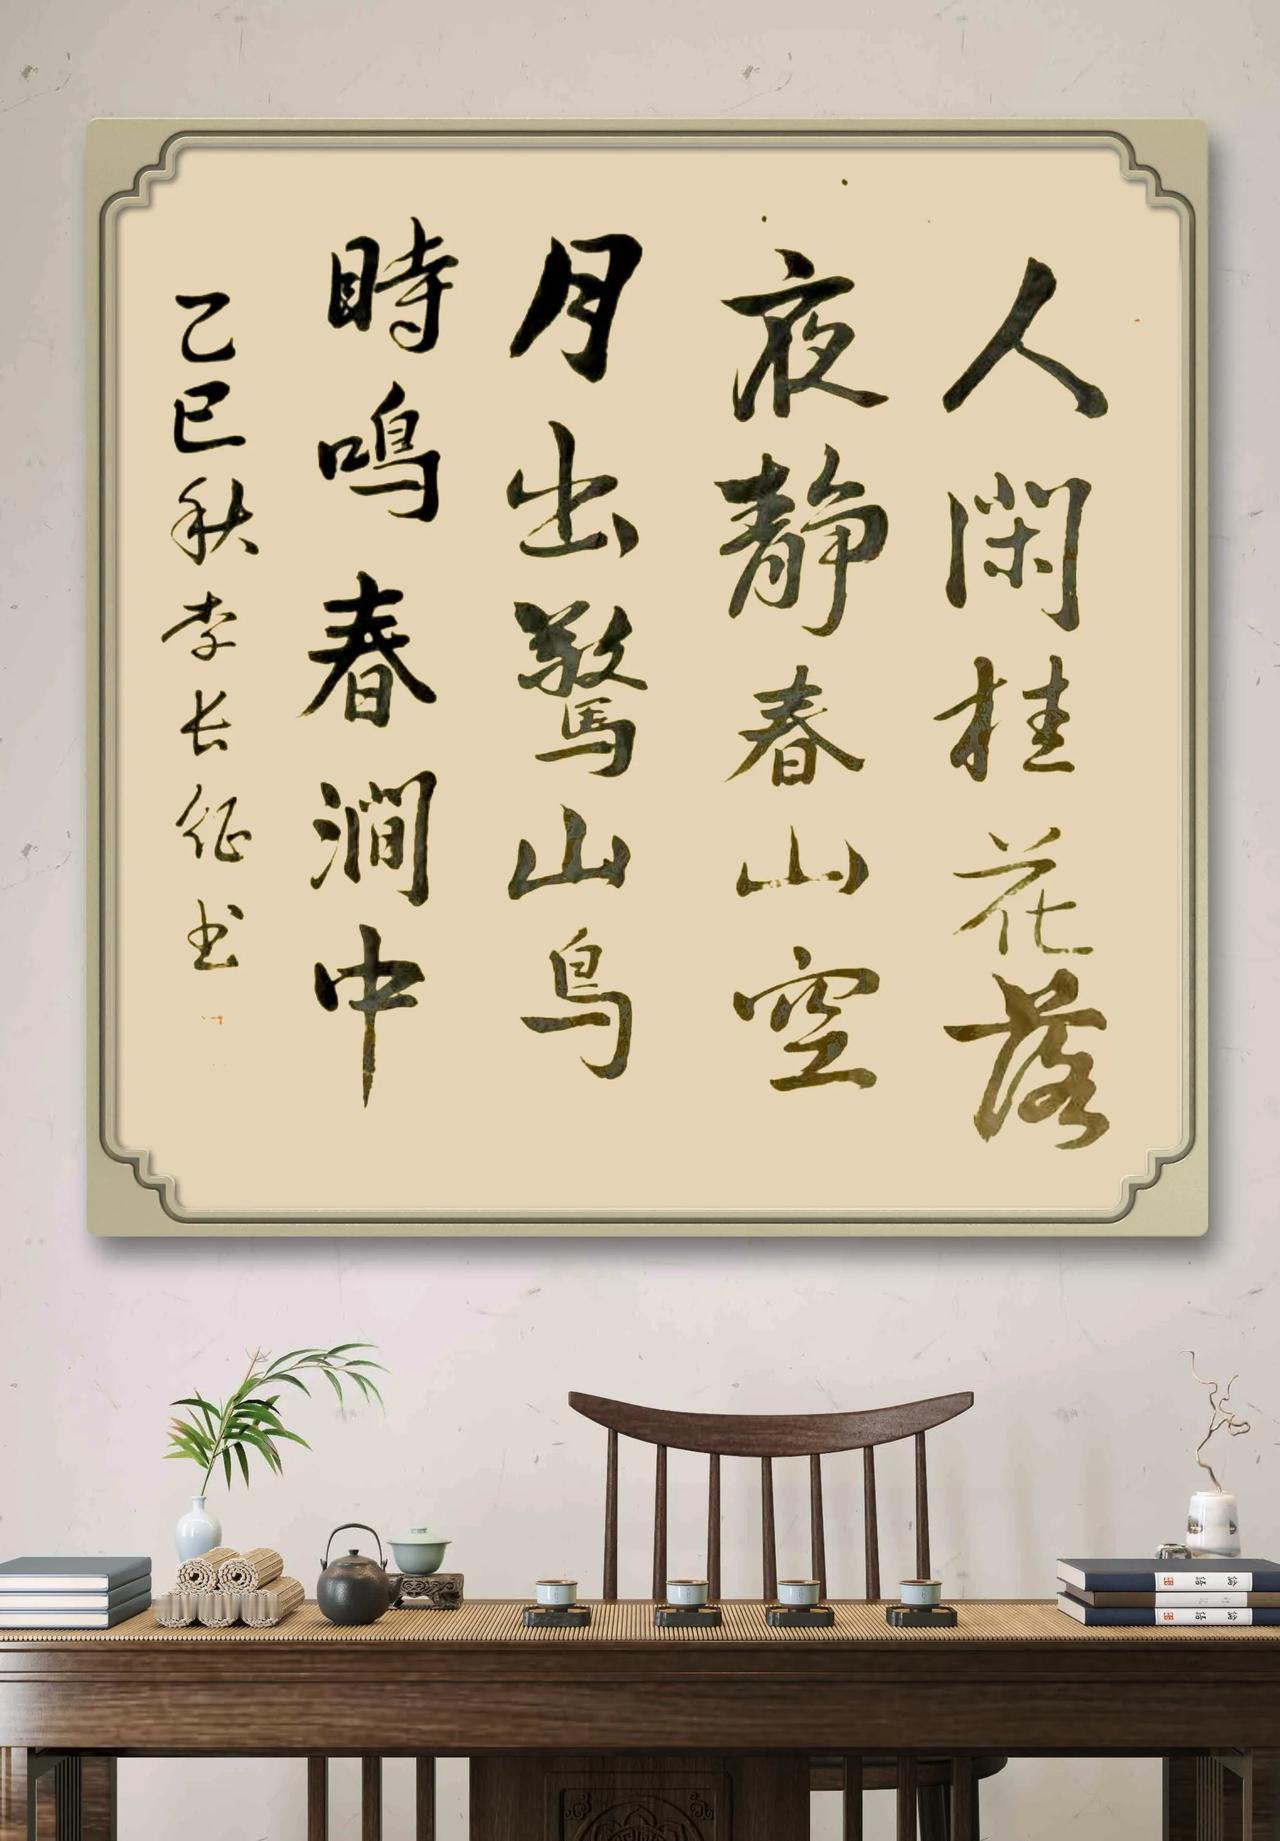 人閑桂花落
夜静春山空
月出驚山鸟
時鸣春澗中
乙巳秋李长征书